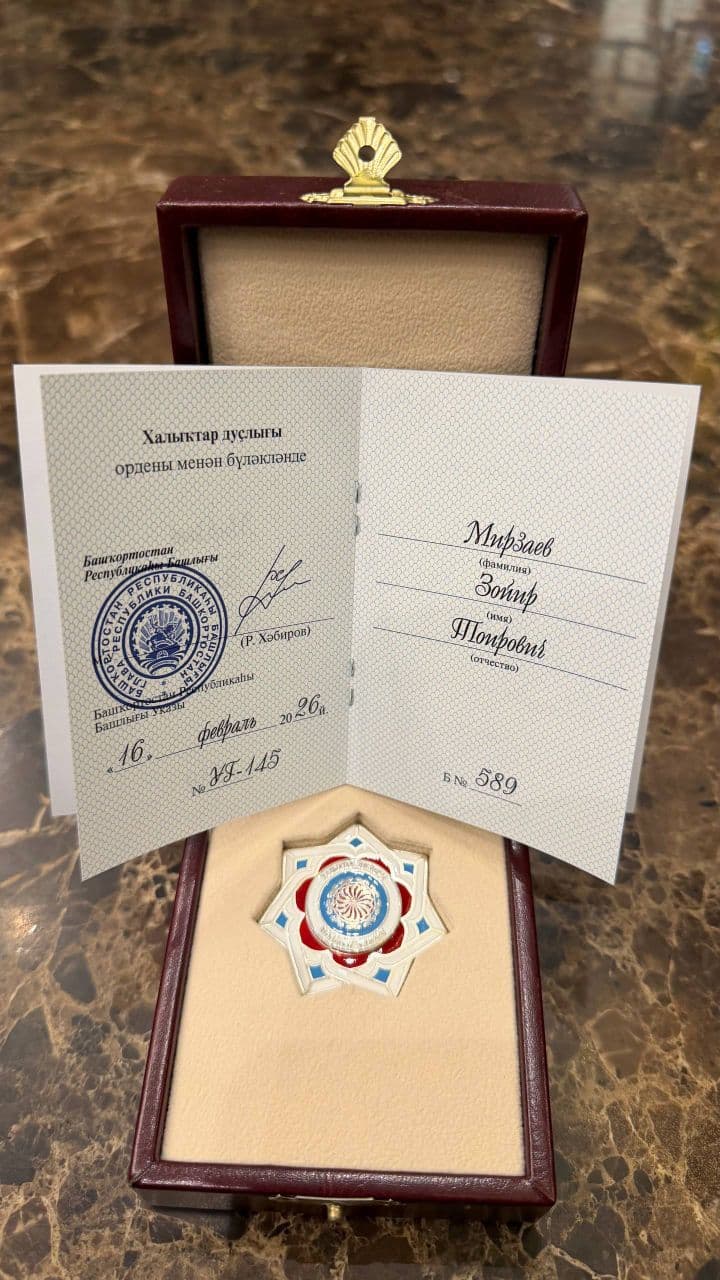 Халыҡтар дуҫлығы
ордены менән бүләкләнде
Башҡортостан
Республикаһы Башлығы
БАШҠОРТОСТАН РЕСПУБЛИКАҺЫ БАШЛЫҒЫ
ГЛАВА РЕСПУБЛИКИ БАШКОРТОСТАН
(Р. Хәбиров)
Башҡортостан Республикаһы
Башлығы Указы
«16» февраль 2026й.
№ УГ-145
Мирзаев
(фамилия)
Зойир
(имя)
Тоирович
(отчество)
Б № 589